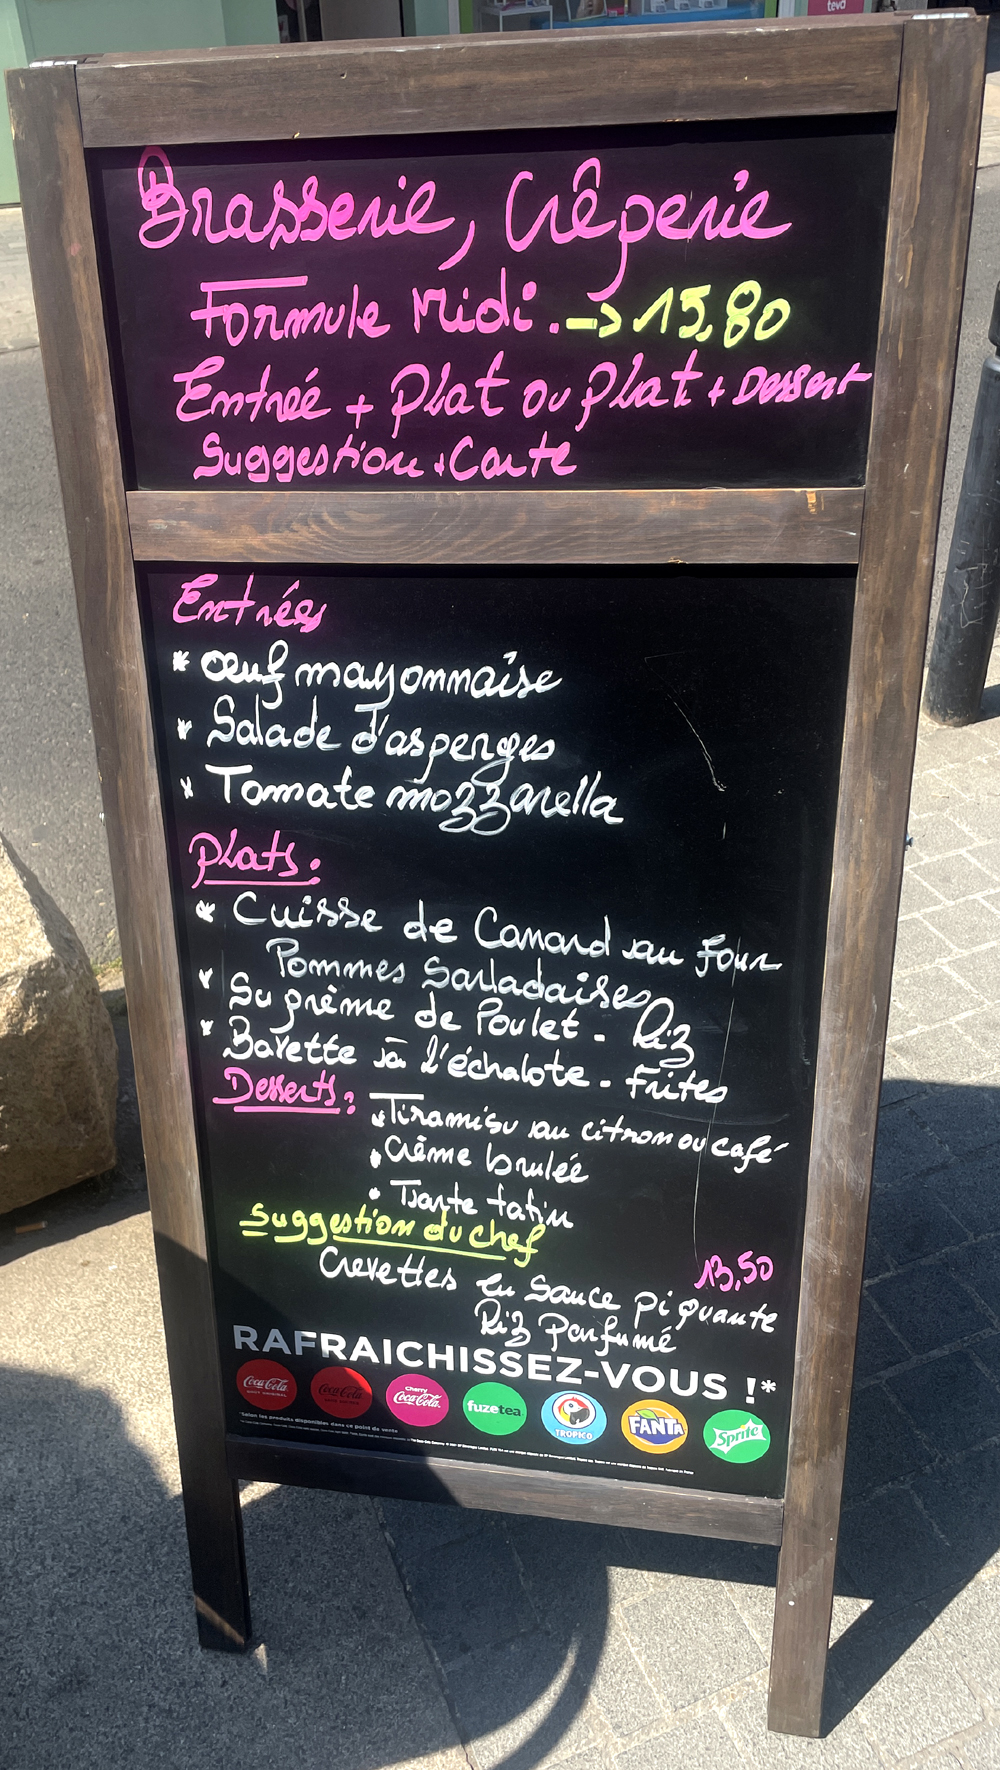 Brasserie, Crêperie
Formule Midi. -> 15,80
Entrée + Plat ou Plat + Dessert
Suggestion + Carte
Entrées
* œuf mayonnaise
* Salade d'asperges
* Tomate mozzarella
Plats:
* Cuisse de Canard au four
Pommes Sarladaises
* Suprême de Poulet - Riz
* Bavette à l'échalote - Frites
Desserts:
* Tiramisu au citron ou café
* Crème brulée
• Tarte tatin
Suggestion du chef
13,50
Crevettes en Sauce piquante
Riz parfumé
RAFRAICHISSEZ-VOUS !*
Coca-Cola Coca-Cola Cherry Coca-Cola fuzetea TROPICO FANTA Sprite
*Selon les produits disponibles dans ce point de vente